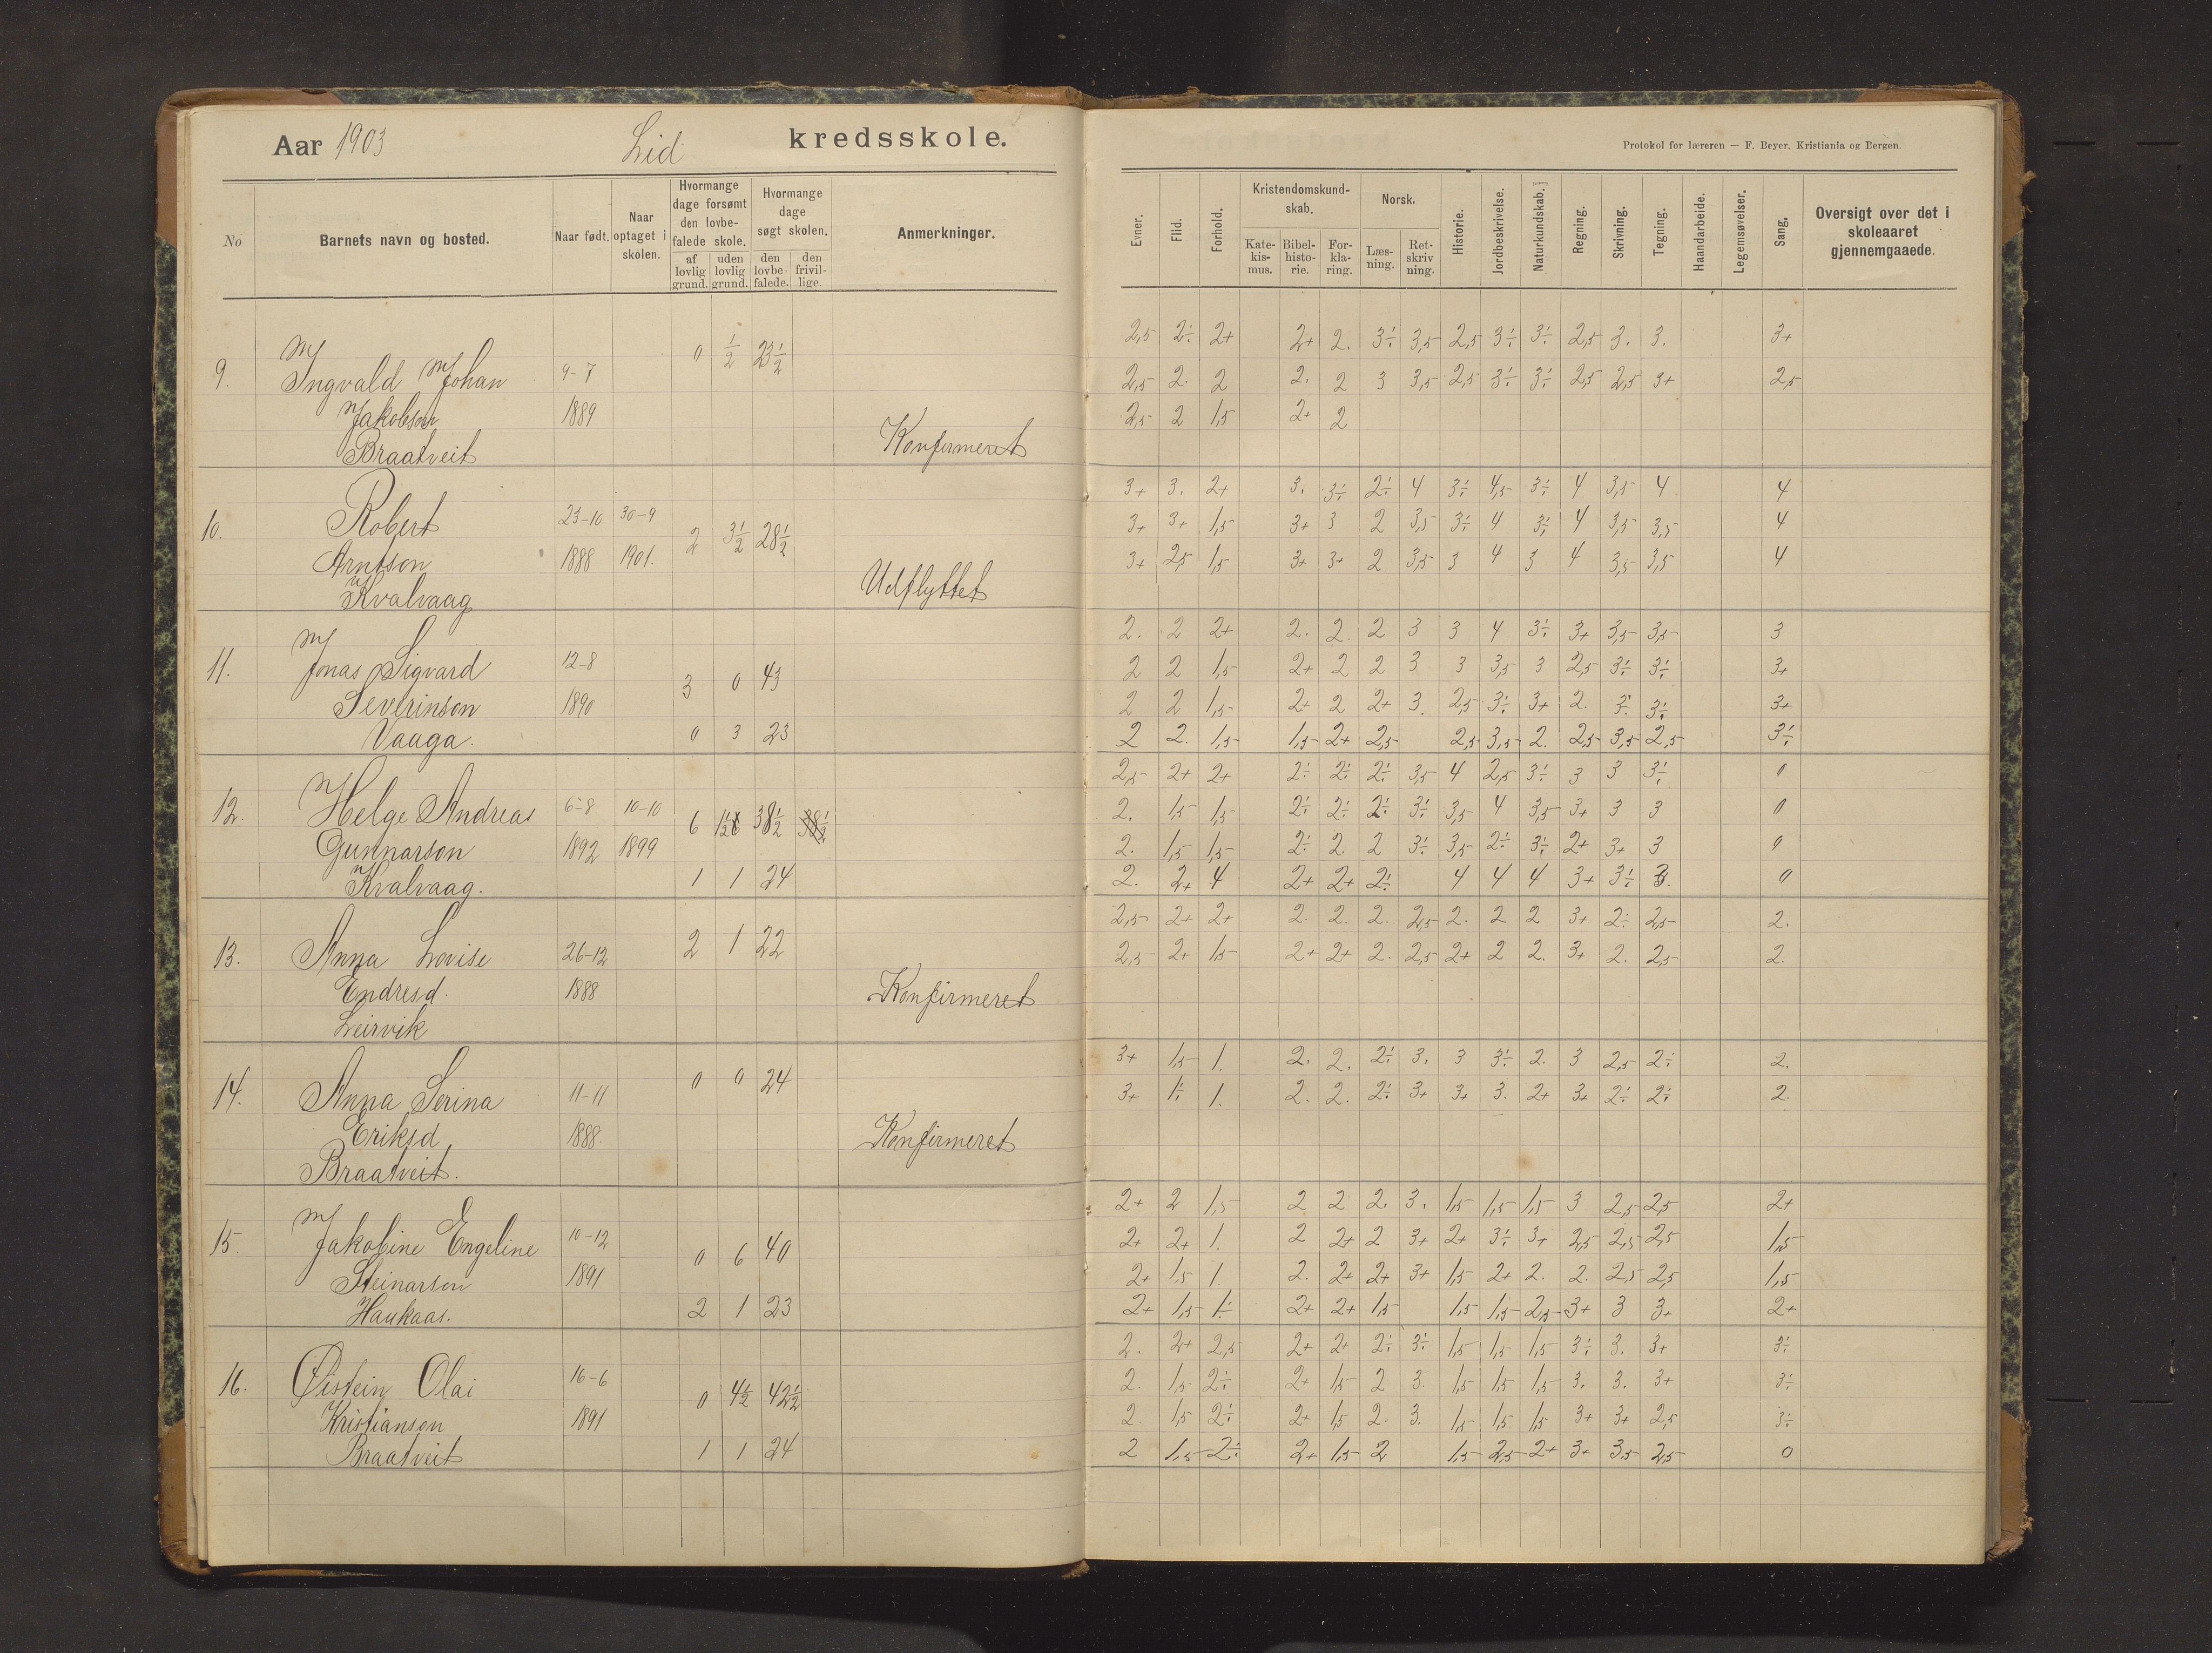 Aar 1903 Lid kredsskole.
Protokol for læreren — F. Beyer. Kristiania og Bergen.
No
Barnets navn og bosted.
Naar født.
Naar optaget i skolen.
Hvormange dage forsømt den lovbefalede skole.
af lovlig grund.
uden lovlig grund.
Hvormange dage søgt skolen.
den lovbefalede.
den frivillige.
Anmerkninger.
Evner.
Flid.
Forhold.
Kristendomskundskab.
Katekismus.
Bibelhistorie.
Forklaring.
Norsk.
Læsning.
Retskrivning.
Historie.
Jordbeskrivelse.
Naturkundskab.
Regning.
Skrivning.
Tegning.
Haandarbeide.
Legemsøvelser.
Sang.
Oversigt over det i skoleaaret gjennemgaaede.
0 1/2 23 1/2
2,5 2÷ 2+ 2+ 2. 3÷ 3,5 2,5 3÷ 3÷ 2,5 3. 3. 3+
9. Ingvald Johan 9-7
2,5 2. 2 2. 2 3 3,5 2,5 3÷ 3÷ 2,5 2,5 3+ 2,5
Jakobson 1889
2,5 2 1,5 2+ 2
Braatveit Konfirmeret
3+ 3. 2+ 3. 3÷ 2÷ 4 3÷ 4,5 3÷ 4 3,5 4 4
10. Robert 23-10 30-9 2 3 1/2 28 1/2
3+ 3+ 1,5 3+ 3 2 3,5 3÷ 4 3÷ 4 3,5 3,5 4
Arntson 1888 1901.
3+ 2,5 1,5 3+ 3+ 2 3,5 3 4 3 4 3,5 3,5 4
Kvalvaag Udflyttet
2. 2 2+ 2. 2. 2 3 3 4 3÷ 3+ 3,5 3,5 3
11. Jonas Sigvard 12-8 3 0 43
2 2 1,5 2+ 2 2 3 3 3,5 3 2,5 3÷ 3÷ 3+
Severinson 1890
2 2 1,5 2+ 2 2+ 3. 2,5 3÷ 3+ 2. 3÷ 3÷ 3+
Vaaga. 0 3 23
2 2. 1,5 1,5 2+ 2,5 2,5 3,5 2. 2,5 3,5 2,5 3÷
2,5 2+ 2+ 2÷ 2÷ 2÷ 3,5 4 2,5 3÷ 3 3 3÷ 0
12. Helge Andreas 6-8 10-10 6 38 1/2
2. 1,5 1,5 2÷ 2÷ 2÷ 3÷ 3,5 4 3,5 3+ 3 3 0
Gunnarson 1892 1899
2. 1,5 1,5 2÷ 2. 2 3÷ 3,5 2÷ 3÷ 2+ 3+ 3 0
Kvalvaag. 1 1 24
2. 2+ 4 2+ 2+ 2÷ 4 4 4 3+ 3÷ 3. 0
2,5 2+ 2+ 2. 2. 2. 2,5 2. 2 2 3+ 2÷ 2,5 2.
13. Anna Lovise 26-12 2 1 22
2,5 2+ 1,5 2+ 2+ 2. 2,5 2+ 2 2. 3+ 2. 2,5 2.
Endresd. 1888 Konfirmeret
Leirvik
3+ 1,5 1. 2. 2. 2÷ 3. 3 3÷ 2. 3 2,5 2÷ 2.
14. Anna Serina 11-11 0 0 24
3+ 1÷ 1. 2. 2. 2÷ 3+ 3+ 3. 2+ 3+ 2÷ 2÷ 2.
Eriksd 1888. Konfirmeret
Braatveit.
2+ 2 1,5 2 2 2. 3. 1,5 1,5 1,5 3 2,5 2,5 2+
15. Jakobine Engeline 10-12 0 6 40
2+ 2+ 1. 2 2+ 2 3+ 2+ 3÷ 3+ 2,5 2,5 2,5 1,5
Steinarson 1891
2+ 1,5 1 2. 2+ 2+ 3+ 1,5 2+ 2. 2. 2,5 2,5 1,5
Haukaas. 2 1 23
2+ 1,5 1÷ 2+ 2+ 1,5 1,5 1,5 2,5 3+ 3 3+ 2+
2. 2+ 2,5 2+ 2+ 2÷ 3÷ 1,5 1,5 1,5 3÷ 3. 3+ 3÷
16. Øistein Olai 16-6 0 4 1/2 42 1/2
2. 1,5 2÷ 2+ 1,5 2 3. 1,5 1,5 1,5 3. 3. 3+ 3÷
Kristianson 1891
2 1,5 2÷ 2+ 1,5 2. 3. 1,5 1,5 1,5 3+ 3+ 2,5 3÷
Braatveit 1 1 24
2 1,5 2÷ 2+ 1,5 2 1,5 2,5 2+ 3+ 3,5 2,5 0